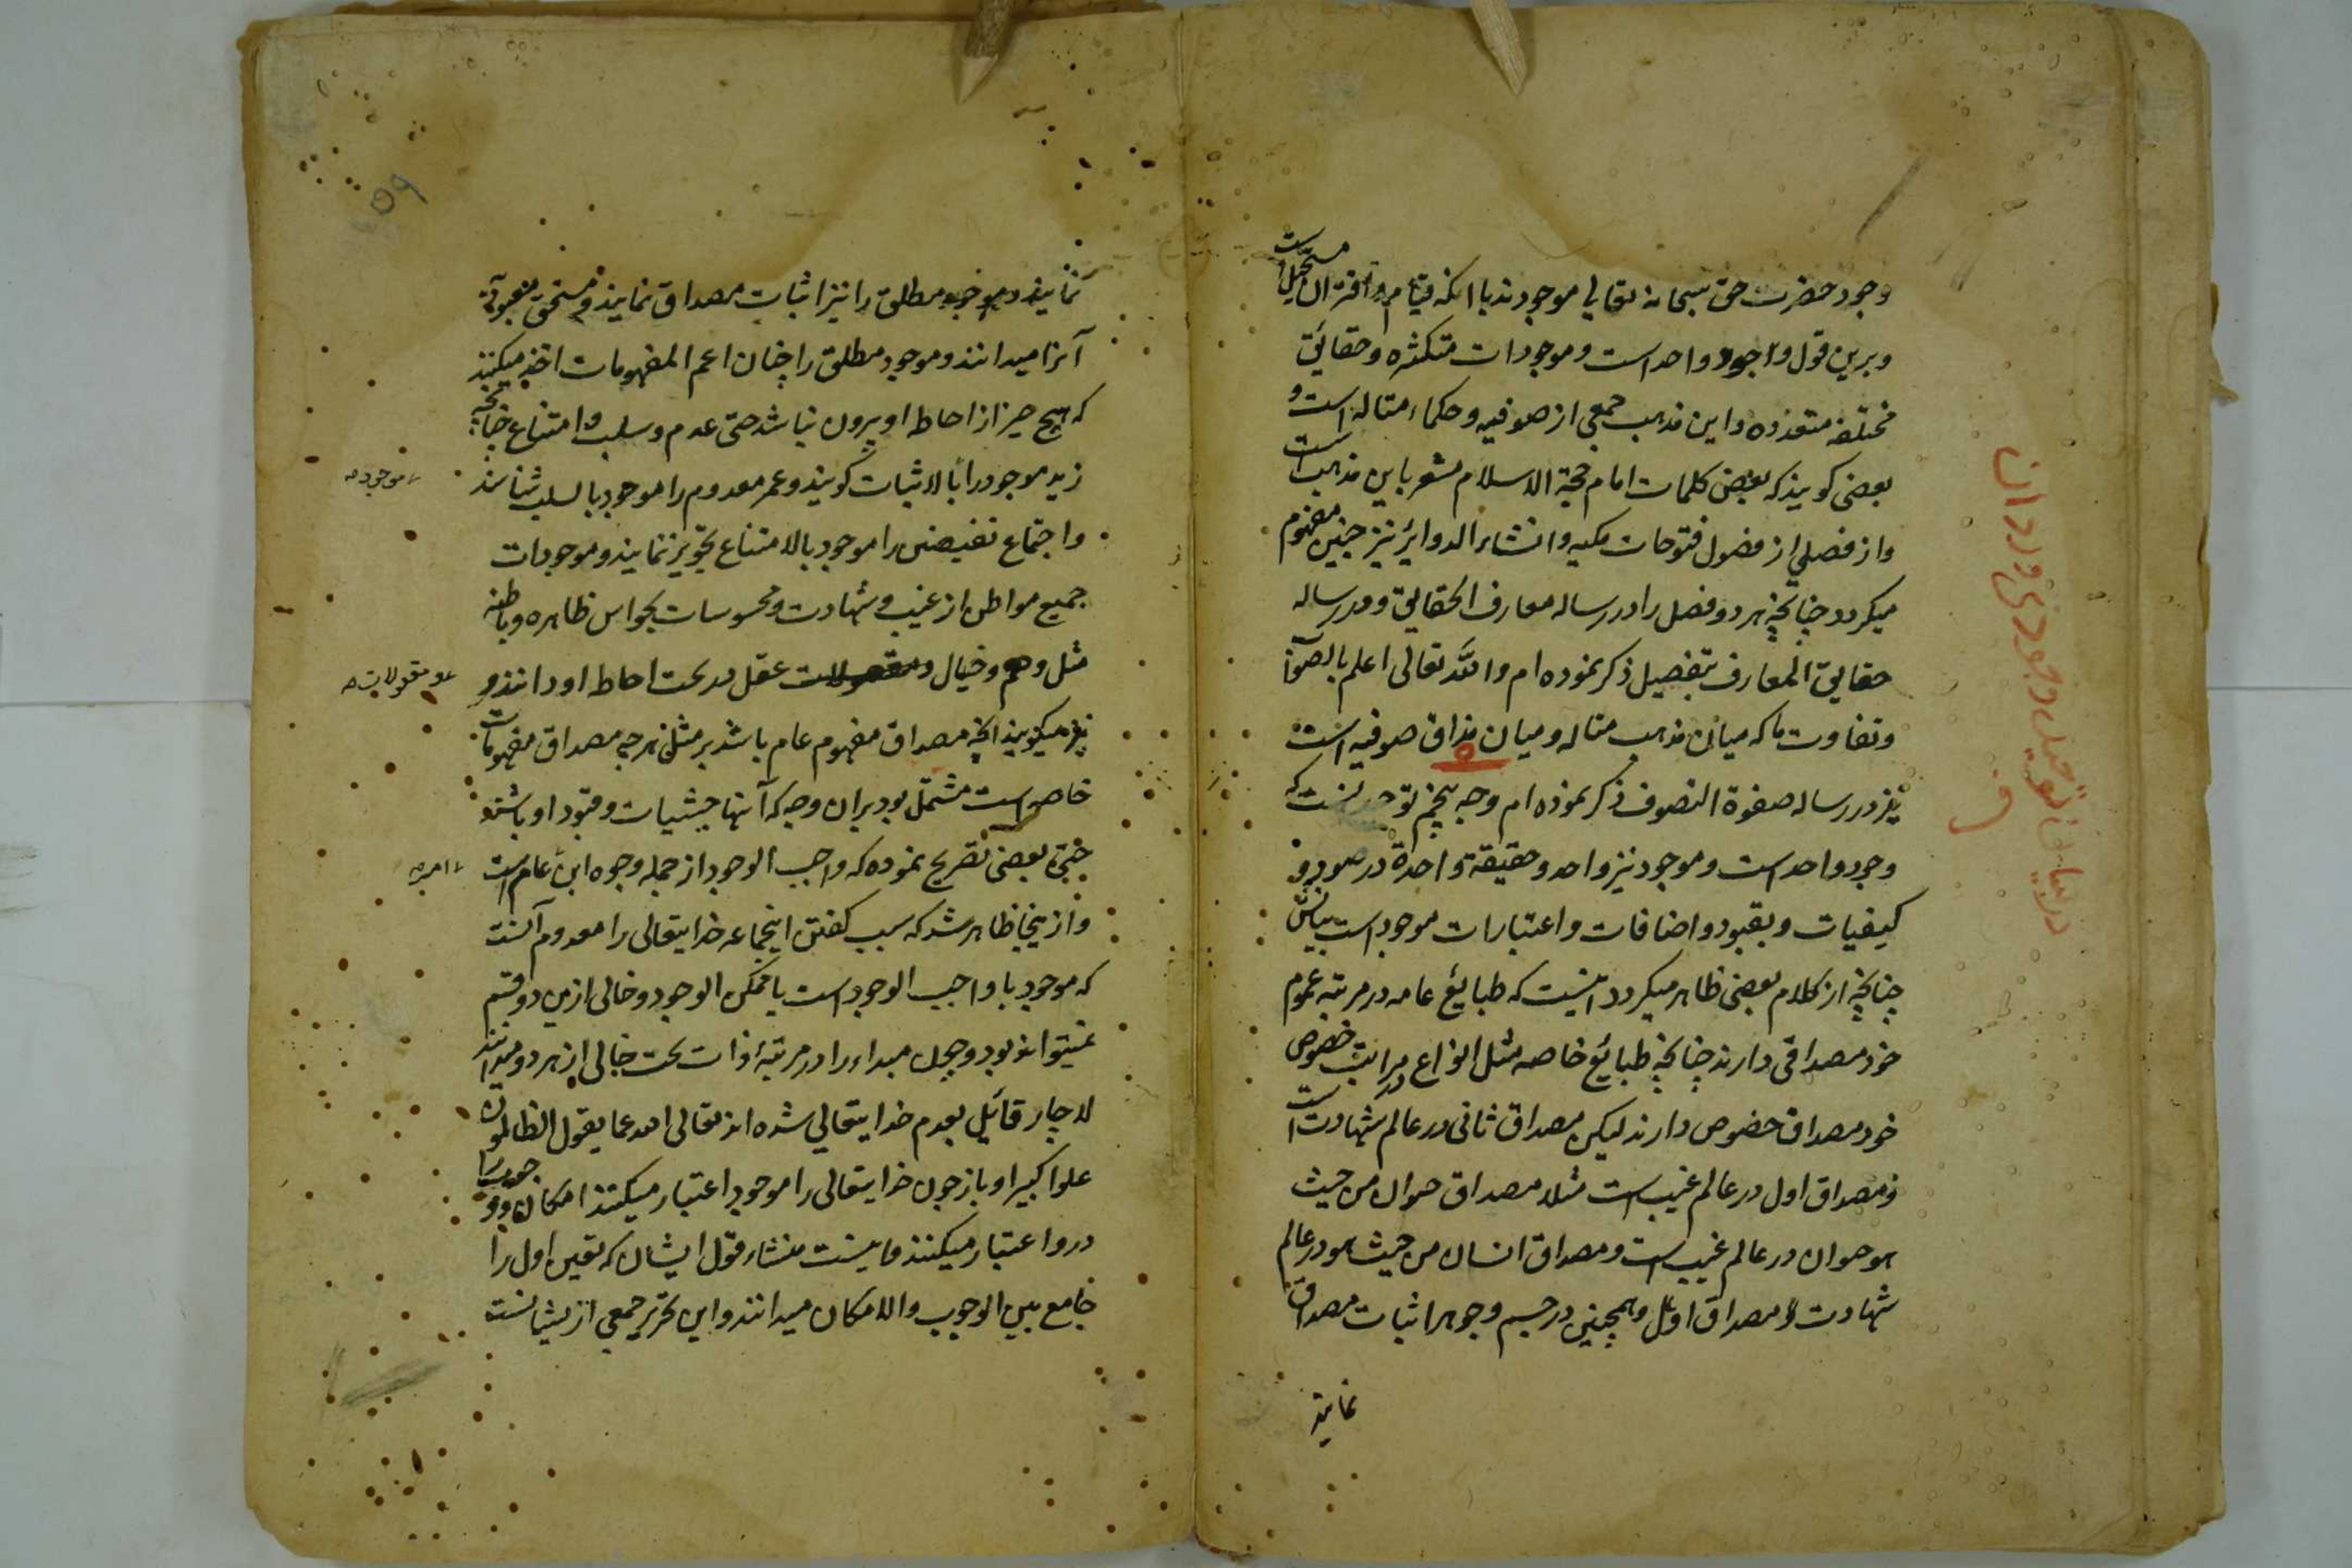 وجود حضرت حق سبحانه تعالی موجودند با انکه قیام و اقتران مستحیل است
و برین قول واجود واحد است و موجودات متکثره و حقائق
مختلفه متعدده و این مذهب جمعی از صوفیه و حکماء متاله است و
بعضی کویند که بعض کلمات امام حجة الاسلام مشعر باین مذهب است
و از فصلی از فصول فتوحات مکیه و انشاء الدوائر نیز چنین مفهوم
میکردد چنانچه هر دو فصل را در رساله معارف الحقایق و در رساله
حقایق المعارف بتفصیل ذکر نموده ام والله تعالی اعلم بالصوٓاب
و تفاوت ما که میان مذهب متاله و میان مذاق صوفیه است
نیز در رساله صفوة التصوف ذکر نموده ام وجه پنجم توحید آنست که
وجود واحد است و موجود نیز واحد و حقیقة واحدة در صور و
کیفیات و بقیود و اضافات و اعتبارات موجود است بیانش
چنانچه از کلام بعضی ظاهر میکردد اینست که طبائع عامه در مرتبه عموم
خود مصداقی دارند چنانچه طبائع خاصه مثل انواع در مراتب خصوص
خود مصداق خصوص دارند لیکن مصداق ثانی در عالم شهادت است
و مصداق اول در عالم غیب است مثلا مصداق حیوان من حیث
هو حیوان در عالم غیب است و مصداق انسان من حیث هو در عالم
شهادت و مصداق اول و همچنین در جسم و جوهر اثبات مصداق
نمایند
در بیان توحید وجودی و در ان
نمایند و موجود مطلق را نیز اثبات مصداق نمایند و مستحق معبودیة
آنرا میدانند و موجود مطلق را چنان اعم المفهومات اخذ میکنند
که هیچ چیز از احاطه او بیرون نباشد حتی عدم و سلب و امتناع چنانچه
زید موجود را بالاثبات کویند و عمر معدوم را موجود بالسلب شناسند
موجود
و اجتماع نقیضین را موجود بالامتناع تجویز نمایند و موجودات
جمیع مواطن از غیب و شهادت و محسوسات بحواس ظاهره و باطنه
مثل وهم و خیال و معقولات عقل در تحت احاطه او دانند و
معقولات
نیز میکویند انچه مصداق مفهوم عام باشد بر مثل هرچه مصداق مفهومات
خاص است مشتمل بود بران وجه که آنها حیثیات و قیود او باشند
حتی بعضی تصریح نموده که واجب الوجود از جمله وجوه این عام است
امر
و ازینجا ظاهر شد که سبب کفتن اینجماعه خدایتعالی را معدوم آنست
که موجود یا واجب الوجود است یا ممکن الوجود و خالی ازین دو قسم
نمیتواند بود و چون مبداء را در مرتبۀ ذات بحت خالی از هر دو میدانند
لاچار قائل بعدم خدایتعالی شده اند تعالی الله عما یقول الظالمون
علوا کبیرا و باز چون خدایتعالی را موجود اعتبار میکنند امکان و وجوب را
درو اعتبار میکنند و اینست منشاء قول ایشان که تعین اول را
جامع بین الوجوب والامکان میدانند و این تحریر جمعی از ایشانست